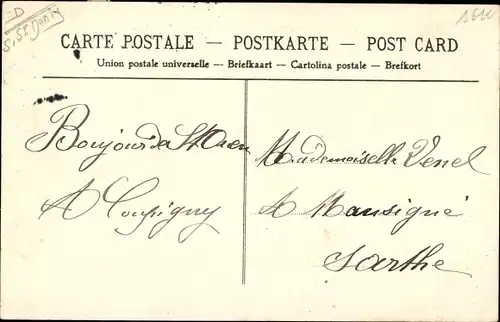 D
S. St Denis
1612
CARTE POSTALE — POSTKARTE — POST CARD
Union postale universelle — Briefkaart — Cartolina postale — Brefkort
Bonjour de St Ouen
A Coupigny
Mademoiselle Venel
A Mansigné
Sarthe